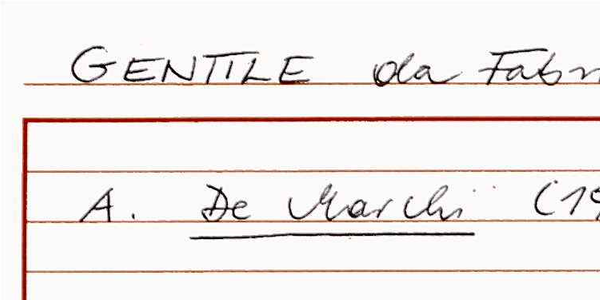 GENTILE da Fabr
A. De Marchi (19